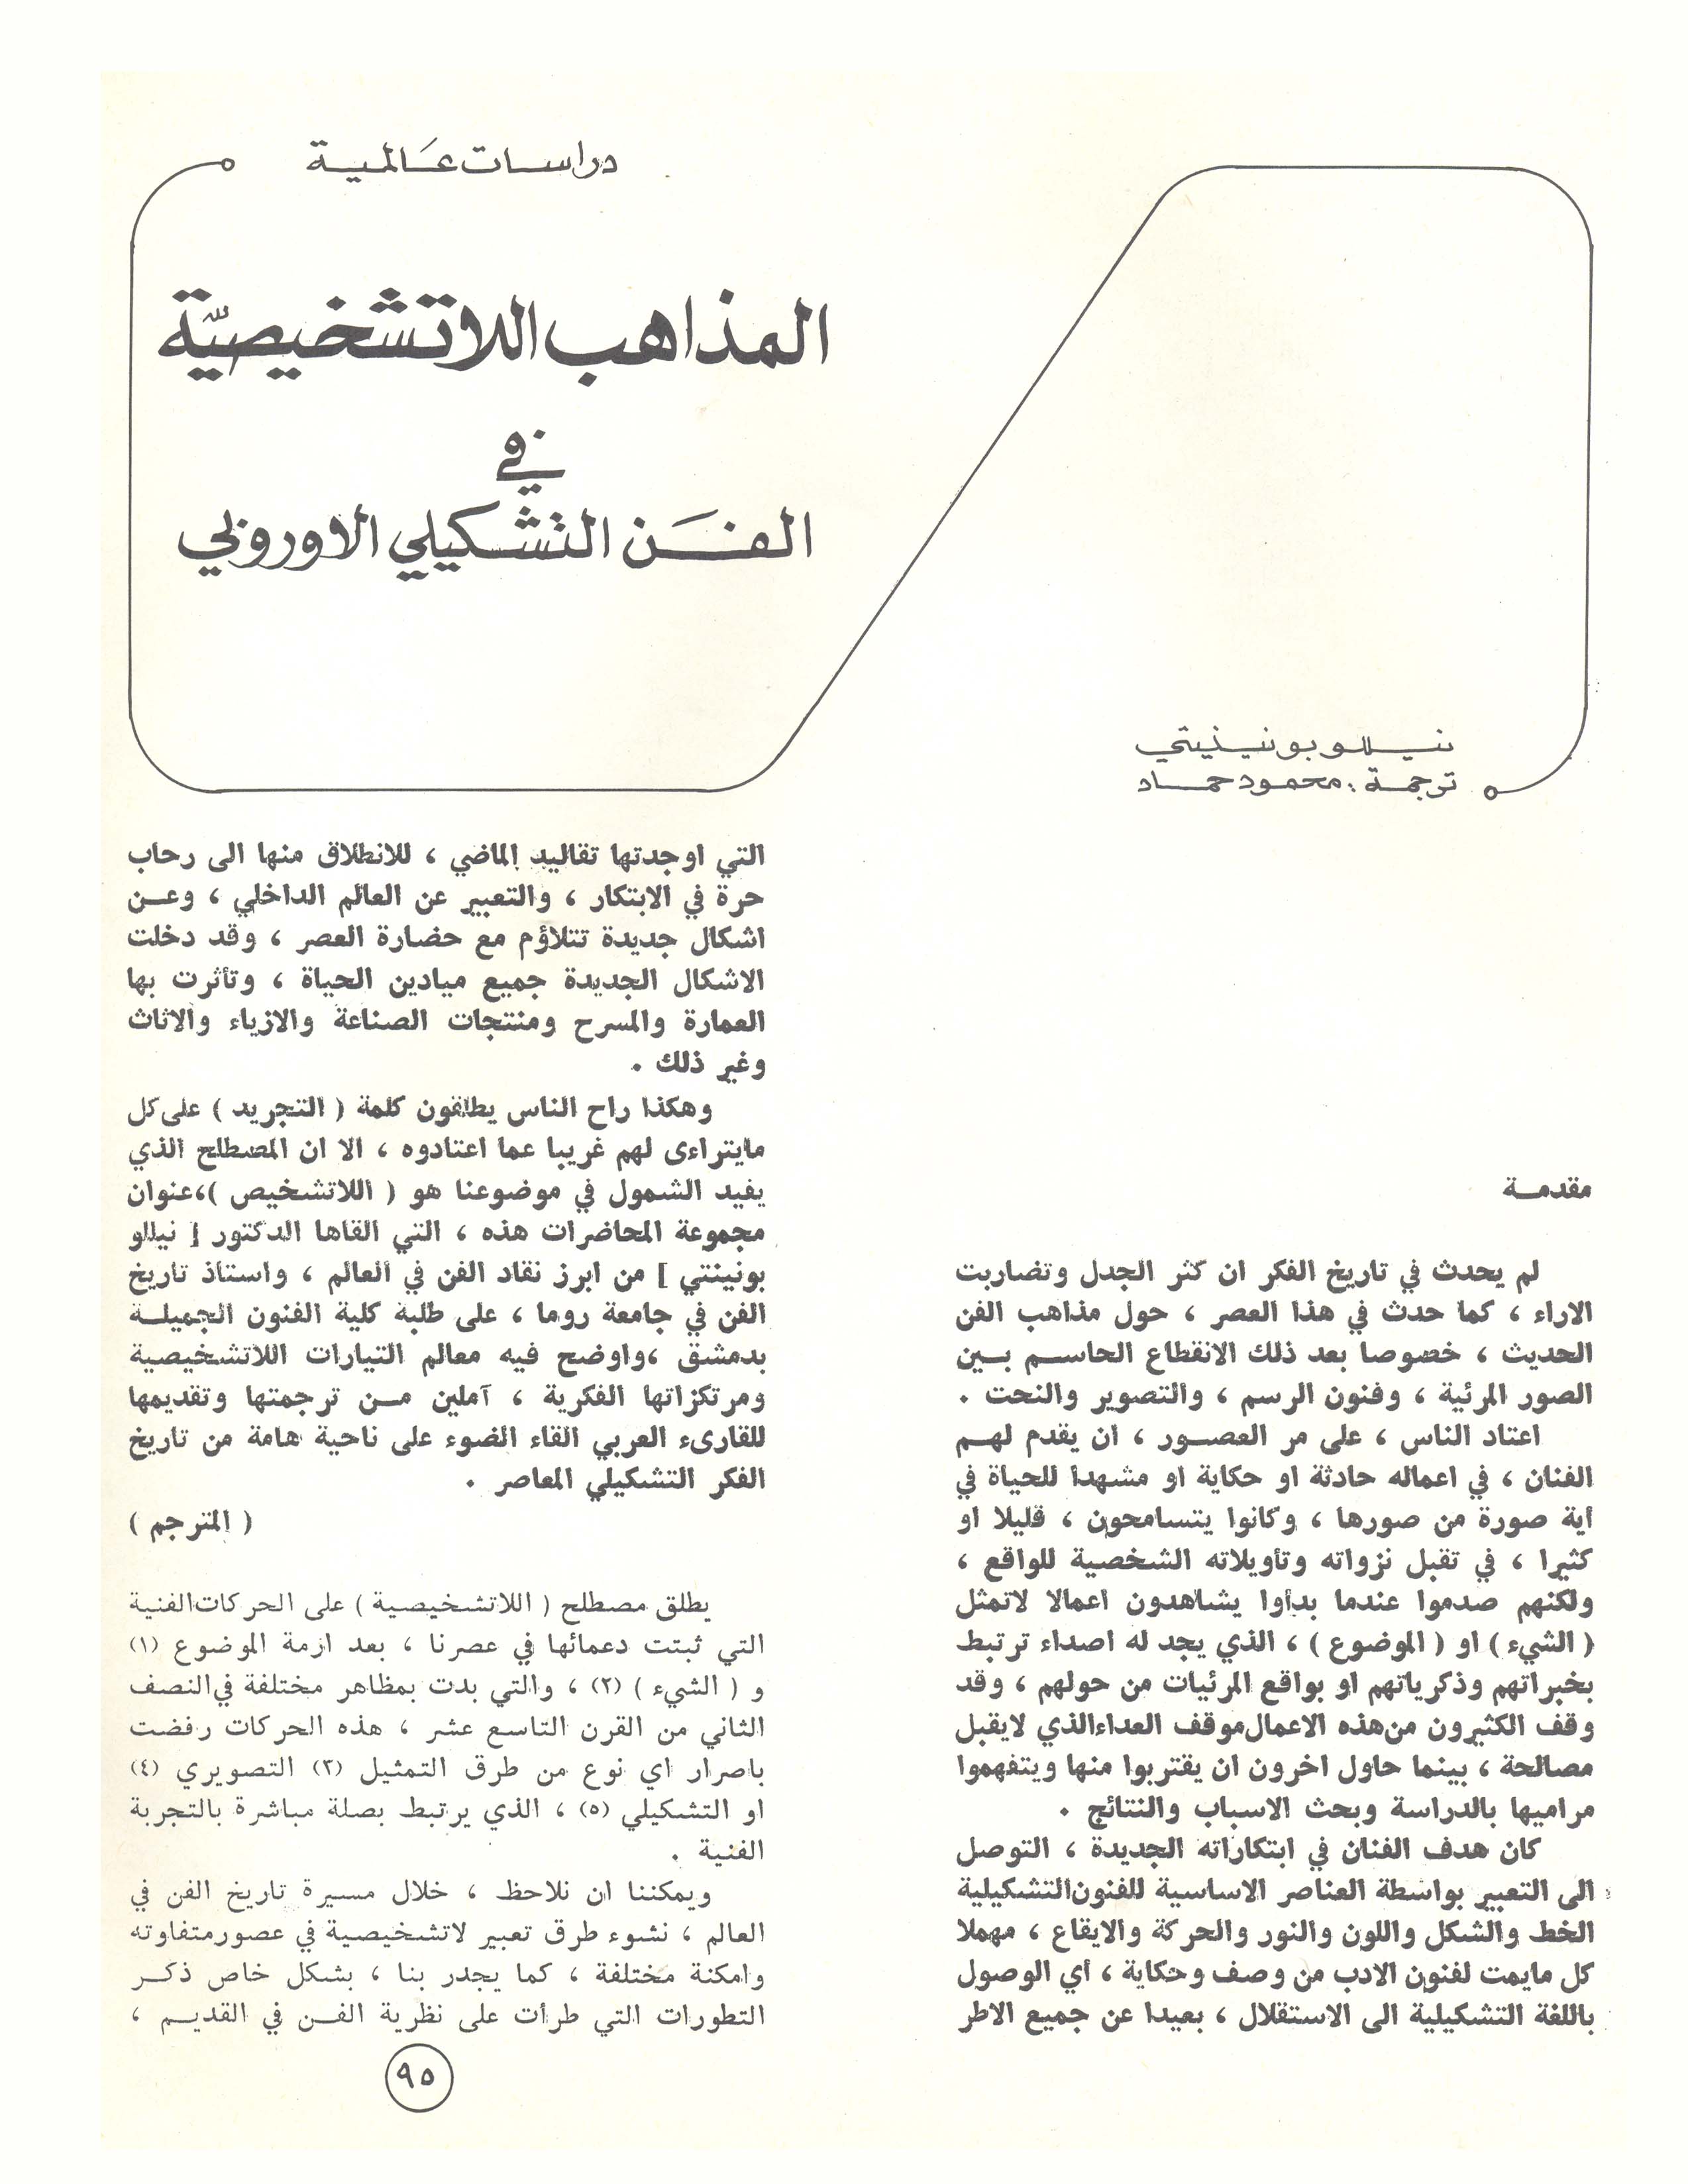 دراسات عَالمية
المذاهب اللاتشخيصيّة
في
الفَن التشكيلي الاوروبي
نيللو بونينيتي
ترجمة : محمود حماد
مقدمة
لم يحدث في تاريخ الفكر ان كثر الجدل وتضاربت
الاراء ، كما حدث في هذا العصر ، حول مذاهب الفن
الحديث ، خصوصا بعد ذلك الانقطاع الحاسم بين
الصور المرئية ، وفنون الرسم ، والتصوير والنحت .
اعتاد الناس ، على مر العصور ، ان يقدم لهم
الفنان ، في اعماله حادثة او حكاية او مشهدا للحياة في
اية صورة من صورها ، وكانوا يتسامحون ، قليلا او
كثيرا ، في تقبل نزواته وتأويلاته الشخصية للواقع ،
ولكنهم صدموا عندما بدأوا يشاهدون اعمالا لاتمثل
( الشيء ) او ( الموضوع ) ، الذي يجد له اصداء ترتبط
بخبراتهم وذكرياتهم او بواقع المرئيات من حولهم ، وقد
وقف الكثيرون من هذه الاعمال موقف العداء الذي لايقبل
مصالحة ، بينما حاول اخرون ان يقتربوا منها ويتفهموا
مراميها بالدراسة وبحث الاسباب والنتائج .
كان هدف الفنان في ابتكاراته الجديدة ، التوصل
الى التعبير بواسطة العناصر الاساسية للفنون التشكيلية :
الخط والشكل واللون والنور والحركة والايقاع ، مهملا
كل مايمت لفنون الادب من وصف وحكاية ، أي الوصول
باللغة التشكيلية الى الاستقلال ، بعيدا عن جميع الاطر
التي اوجدتها تقاليد الماضي ، للانطلاق منها الى رحاب
حرة في الابتكار ، والتعبير عن العالم الداخلي ، وعن
اشكال جديدة تتلاؤم مع حضارة العصر ، وقد دخلت
الاشكال الجديدة جميع ميادين الحياة ، وتأثرت بها
العمارة والمسرح ومنتجات الصناعة والازياء والاثاث
وغير ذلك .
وهكذا راح الناس يطلقون كلمة ( التجريد ) على كل
مايتراءى لهم غريبا عما اعتادوه ، الا ان المصطلح الذي
يفيد الشمول في موضوعنا هو ( اللاتشخيص )،عنوان
مجموعة المحاضرات هذه ، التي القاها الدكتور [ نيللو
بونينتي ] من ابرز نقاد الفن في العالم ، واستاذ تاريخ
الفن في جامعة روما ، على طلبة كلية الفنون الجميلة
بدمشق ،واوضح فيه معالم التيارات اللاتشخيصية
ومرتكزاتها الفكرية ، آملين من ترجمتها وتقديمها
للقارىء العربي القاء الضوء على ناحية هامة من تاريخ
الفكر التشكيلي المعاصر .
( المترجم )
يطلق مصطلح ( اللاتشخيصية ) على الحركات الفنية
التي ثبتت دعمائها في عصرنا ، بعد ازمة الموضوع (١)
و ( الشيء ) (٢) ، والتي بدت بمظاهر مختلفة في النصف
الثاني من القرن التاسع عشر ، هذه الحركات رفضت
باصرار اي نوع من طرق التمثيل (٣) التصويري (٤)
او التشكيلي (٥) ، الذي يرتبط بصلة مباشرة بالتجربة
الفنية .
ويمكننا ان نلاحظ ، خلال مسيرة تاريخ الفن في
العالم ، نشوء طرق تعبير لاتشخيصية في عصور متفاوته
وامكنة مختلفة ، كما يجدر بنا ، بشكل خاص ذكر
التطورات التي طرأت على نظرية الفن في القديم ،
٩٥